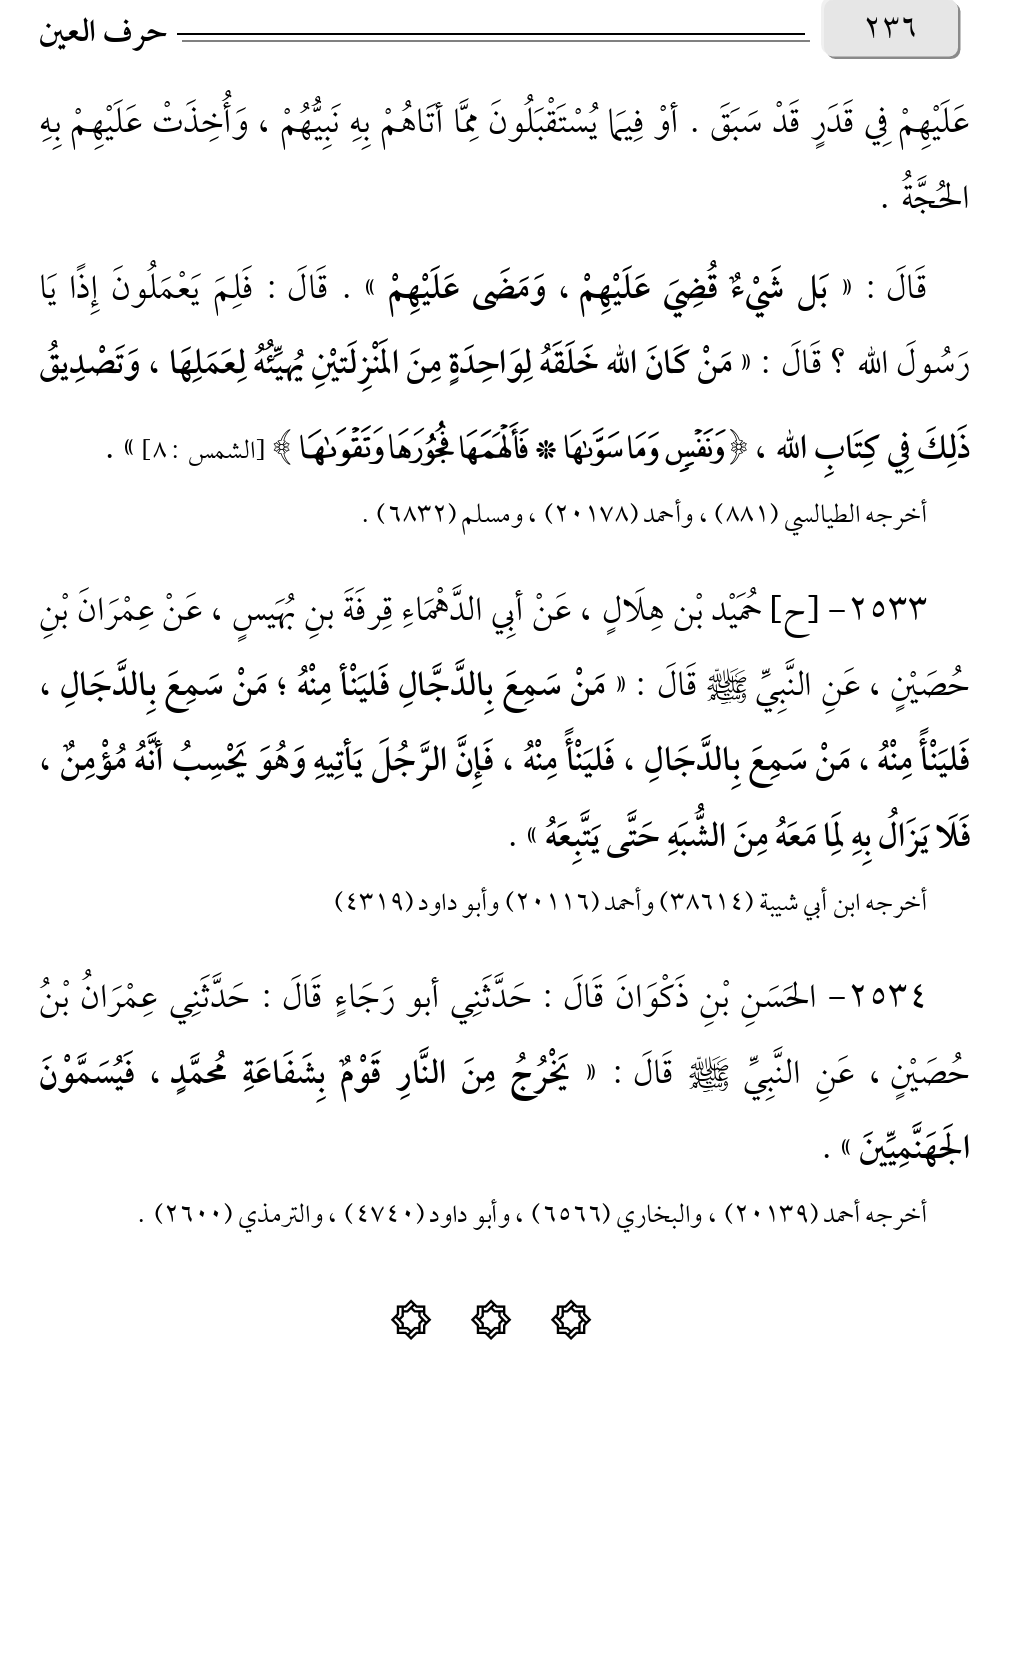 ٢٣٦ حرف العين
عَلَيْهِمْ فِي قَدَرٍ قَدْ سَبَقَ . أوْ فِيمَا يُسْتَقْبَلُونَ مِمَّا أتَاهُمْ بِهِ نَبِيُّهُمْ ، وَأُخِذَتْ عَلَيْهِمْ بِهِ
الحُجَّةُ .
قَالَ : « بَل شَيْءٌ قُضِيَ عَلَيْهِمْ ، وَمَضَى عَلَيْهِمْ » . قَالَ : فَلِمَ يَعْمَلُونَ إِذًا يَا
رَسُولَ الله ؟ قَالَ : « مَنْ كَانَ الله خَلَقَهُ لِوَاحِدَةٍ مِنَ المَنْزِلَتيْنِ يُهيِّئُهُ لِعَمَلِهَا ، وَتَصْدِيقُ
ذَلِكَ فِي كِتَابِ الله ، ﴿ وَنَفْسٍ وَمَا سَوَّىٰهَا * فَأَلْهَمَهَا فُجُورَهَا وَتَقْوَىٰهَا ﴾ [الشمس : ٨] » .
أخرجه الطيالسي (٨٨١) ، وأحمد (٢٠١٧٨) ، ومسلم (٦٨٣٢) .
٢٥٣٣- [ح] حُمَيْد بْن هِلَالٍ ، عَنْ أبِي الدَّهْمَاءِ قِرفَةَ بنِ بُهَيَسٍ ، عَنْ عِمْرَانَ بْنِ
حُصَيْنٍ ، عَنِ النَّبِيِّ ﷺ قَالَ : « مَنْ سَمِعَ بِالدَّجَّالِ فَليَنْأ مِنْهُ ؛ مَنْ سَمِعَ بِالدَّجَالِ ،
فَليَنْأً مِنْهُ ، مَنْ سَمِعَ بِالدَّجَالِ ، فَليَنْأً مِنْهُ ، فَإِنَّ الرَّجُلَ يَأتِيهِ وَهُوَ يَحْسِبُ أنَّهُ مُؤْمِنٌ ،
فَلَا يَزَالُ بِهِ لِمَا مَعَهُ مِنَ الشُّبَهِ حَتَّى يَتَّبِعَهُ » .
أخرجه ابن أبي شيبة (٣٨٦١٤) وأحمد (٢٠١١٦) وأبو داود (٤٣١٩)
٢٥٣٤- الحَسَنِ بْنِ ذَكْوَانَ قَالَ : حَدَّثَنِي أبو رَجَاءٍ قَالَ : حَدَّثَنِي عِمْرَانُ بْنُ
حُصَيْنٍ ، عَنِ النَّبِيِّ ﷺ قَالَ : « يَخْرُجُ مِنَ النَّارِ قَوْمٌ بِشَفَاعَةِ مُحمَّدٍ ، فَيُسَمَّوْنَ
الجَهَنَّمِيِّينَ » .
أخرجه أحمد (٢٠١٣٩) ، والبخاري (٦٥٦٦) ، وأبو داود (٤٧٤٠) ، والترمذي (٢٦٠٠) .